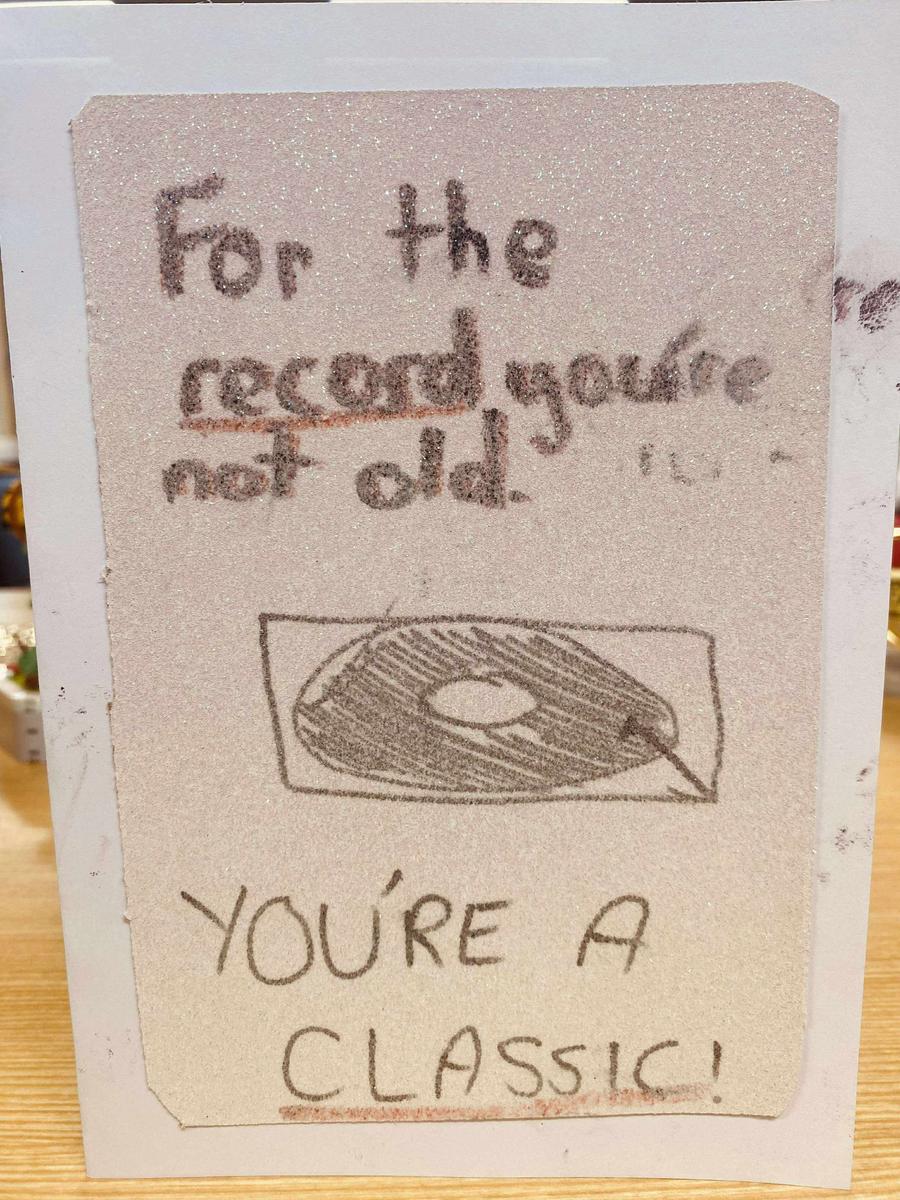 For the
record you're
not old.
YOU'RE A
CLASSIC!